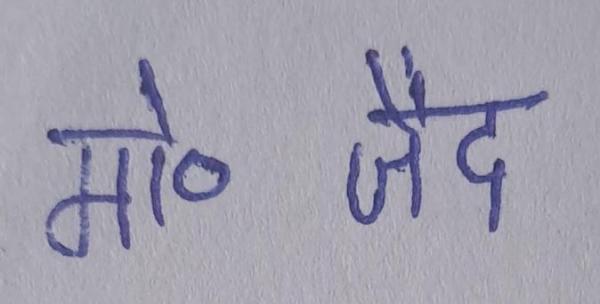 मो० जैद